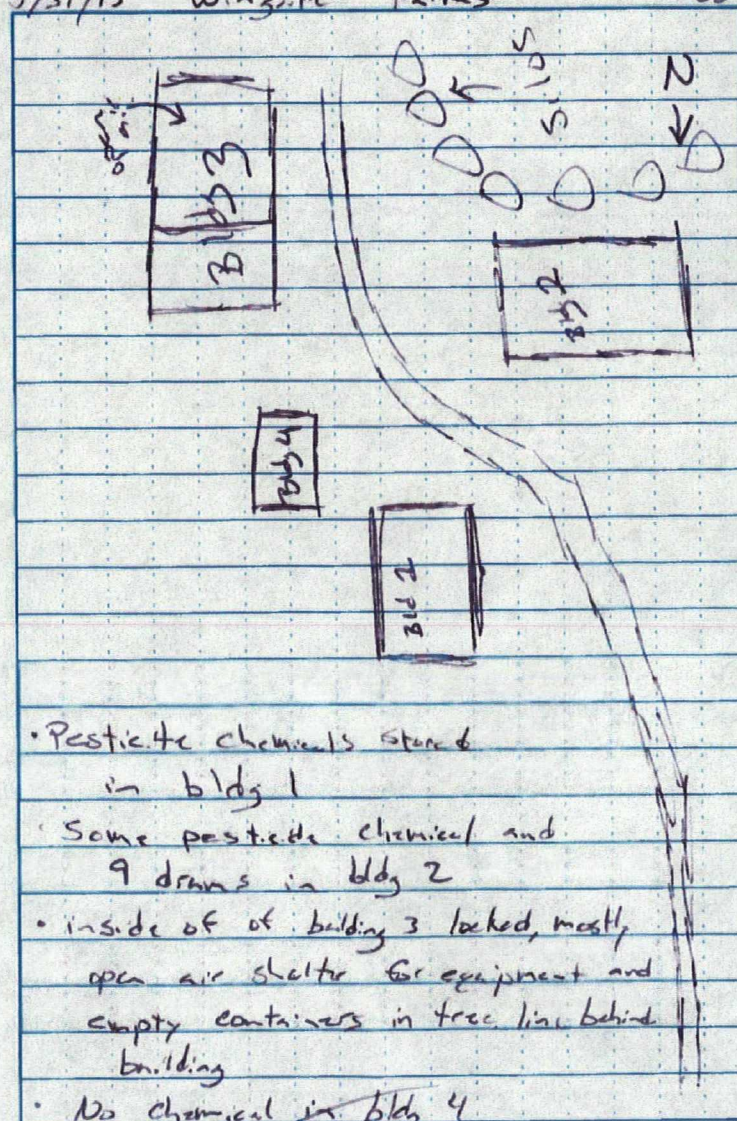 open
air
Bldg 3
Silos
N
Bldg 2
Bldg 4
Bld 2
• Pesticite chemicals stored
in bldg 1
• Some pesticide chemical and
9 drums in bldg 2
• inside of of building 3 locked, mostly
open air shelter for equipment and
empty containers in tree line behind
building
• No chemical in bldg 4